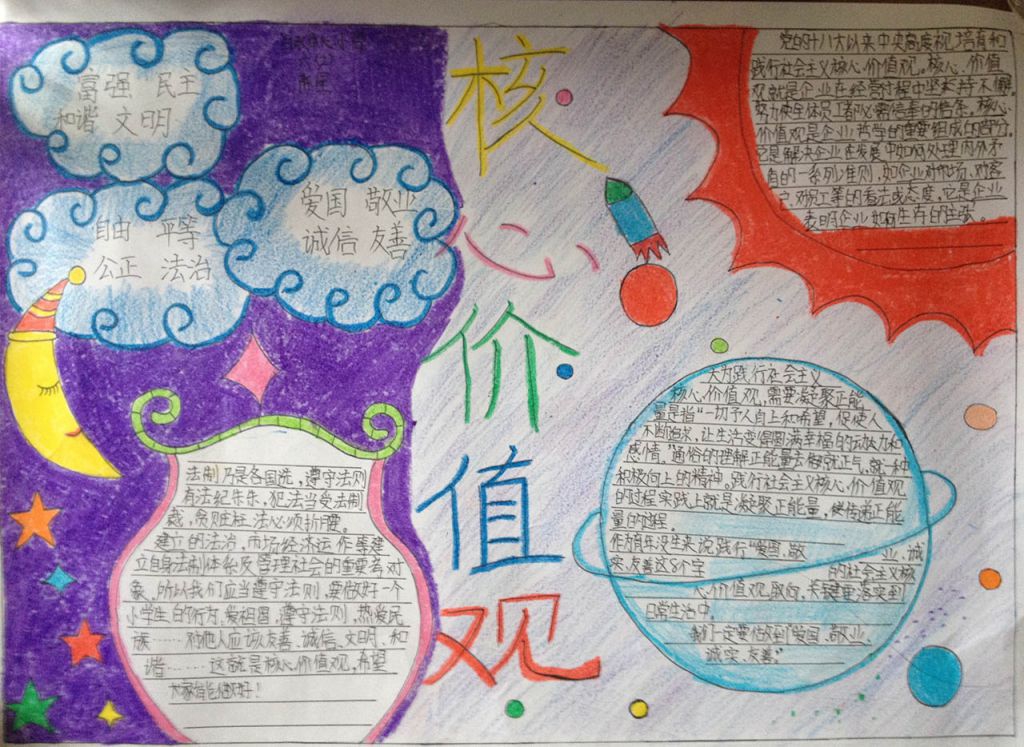 富强 民主
和谐 文明
自由 平等
公正 法治
爱国 敬业
诚信 友善
核
心
价
值
观
党的十八大以来中央高度视,培育和
践行社会主义核心价值观。核心价值
观就是企业在经营过程中坚持不懈
努力使全体员工都必需信奉的信条。核心
价值观是企业哲学的重要组成的部分,
它是解决企业在发展中如何处理内外矛
盾的一系列准则,如企业对市场、对客
户、对员工等的看法或态度,它是企业
表明企业如何生存的主张。
法制乃是各国选,遵守法则
有法纪先乐,犯法当受法制
惩,贪赃枉法必须折腰。
建立的法治,市场经济运作等建
立自身法制体系及管理社会的重要对
象,所以我们应当遵守法则,要做好一个
小学生的行为,爱祖国,遵守法则,热爱民
族……对他人应该友善、诚信、文明、和
谐……这就是核心价值观,希望
大家能做好!
为践行社会主义
核心价值观,需要凝聚正能
量是指“一切予人向上和希望,促使人
不断追求,让生活变得圆满幸福的动力和
感情。”通俗的理解正能量去做就正气,就一种
积极向上的精神。践行社会主义核心价值观
的过程实践上就是凝聚正能量,使传递正能
量的过程。
作为青年没生来说,践行“爱国、敬
业、诚
实、友善这8个字
的社会主义核
心价值观取向,关键要落实到
日常生活中,
我们一定要做到“爱国、敬业、
诚实、友善。”